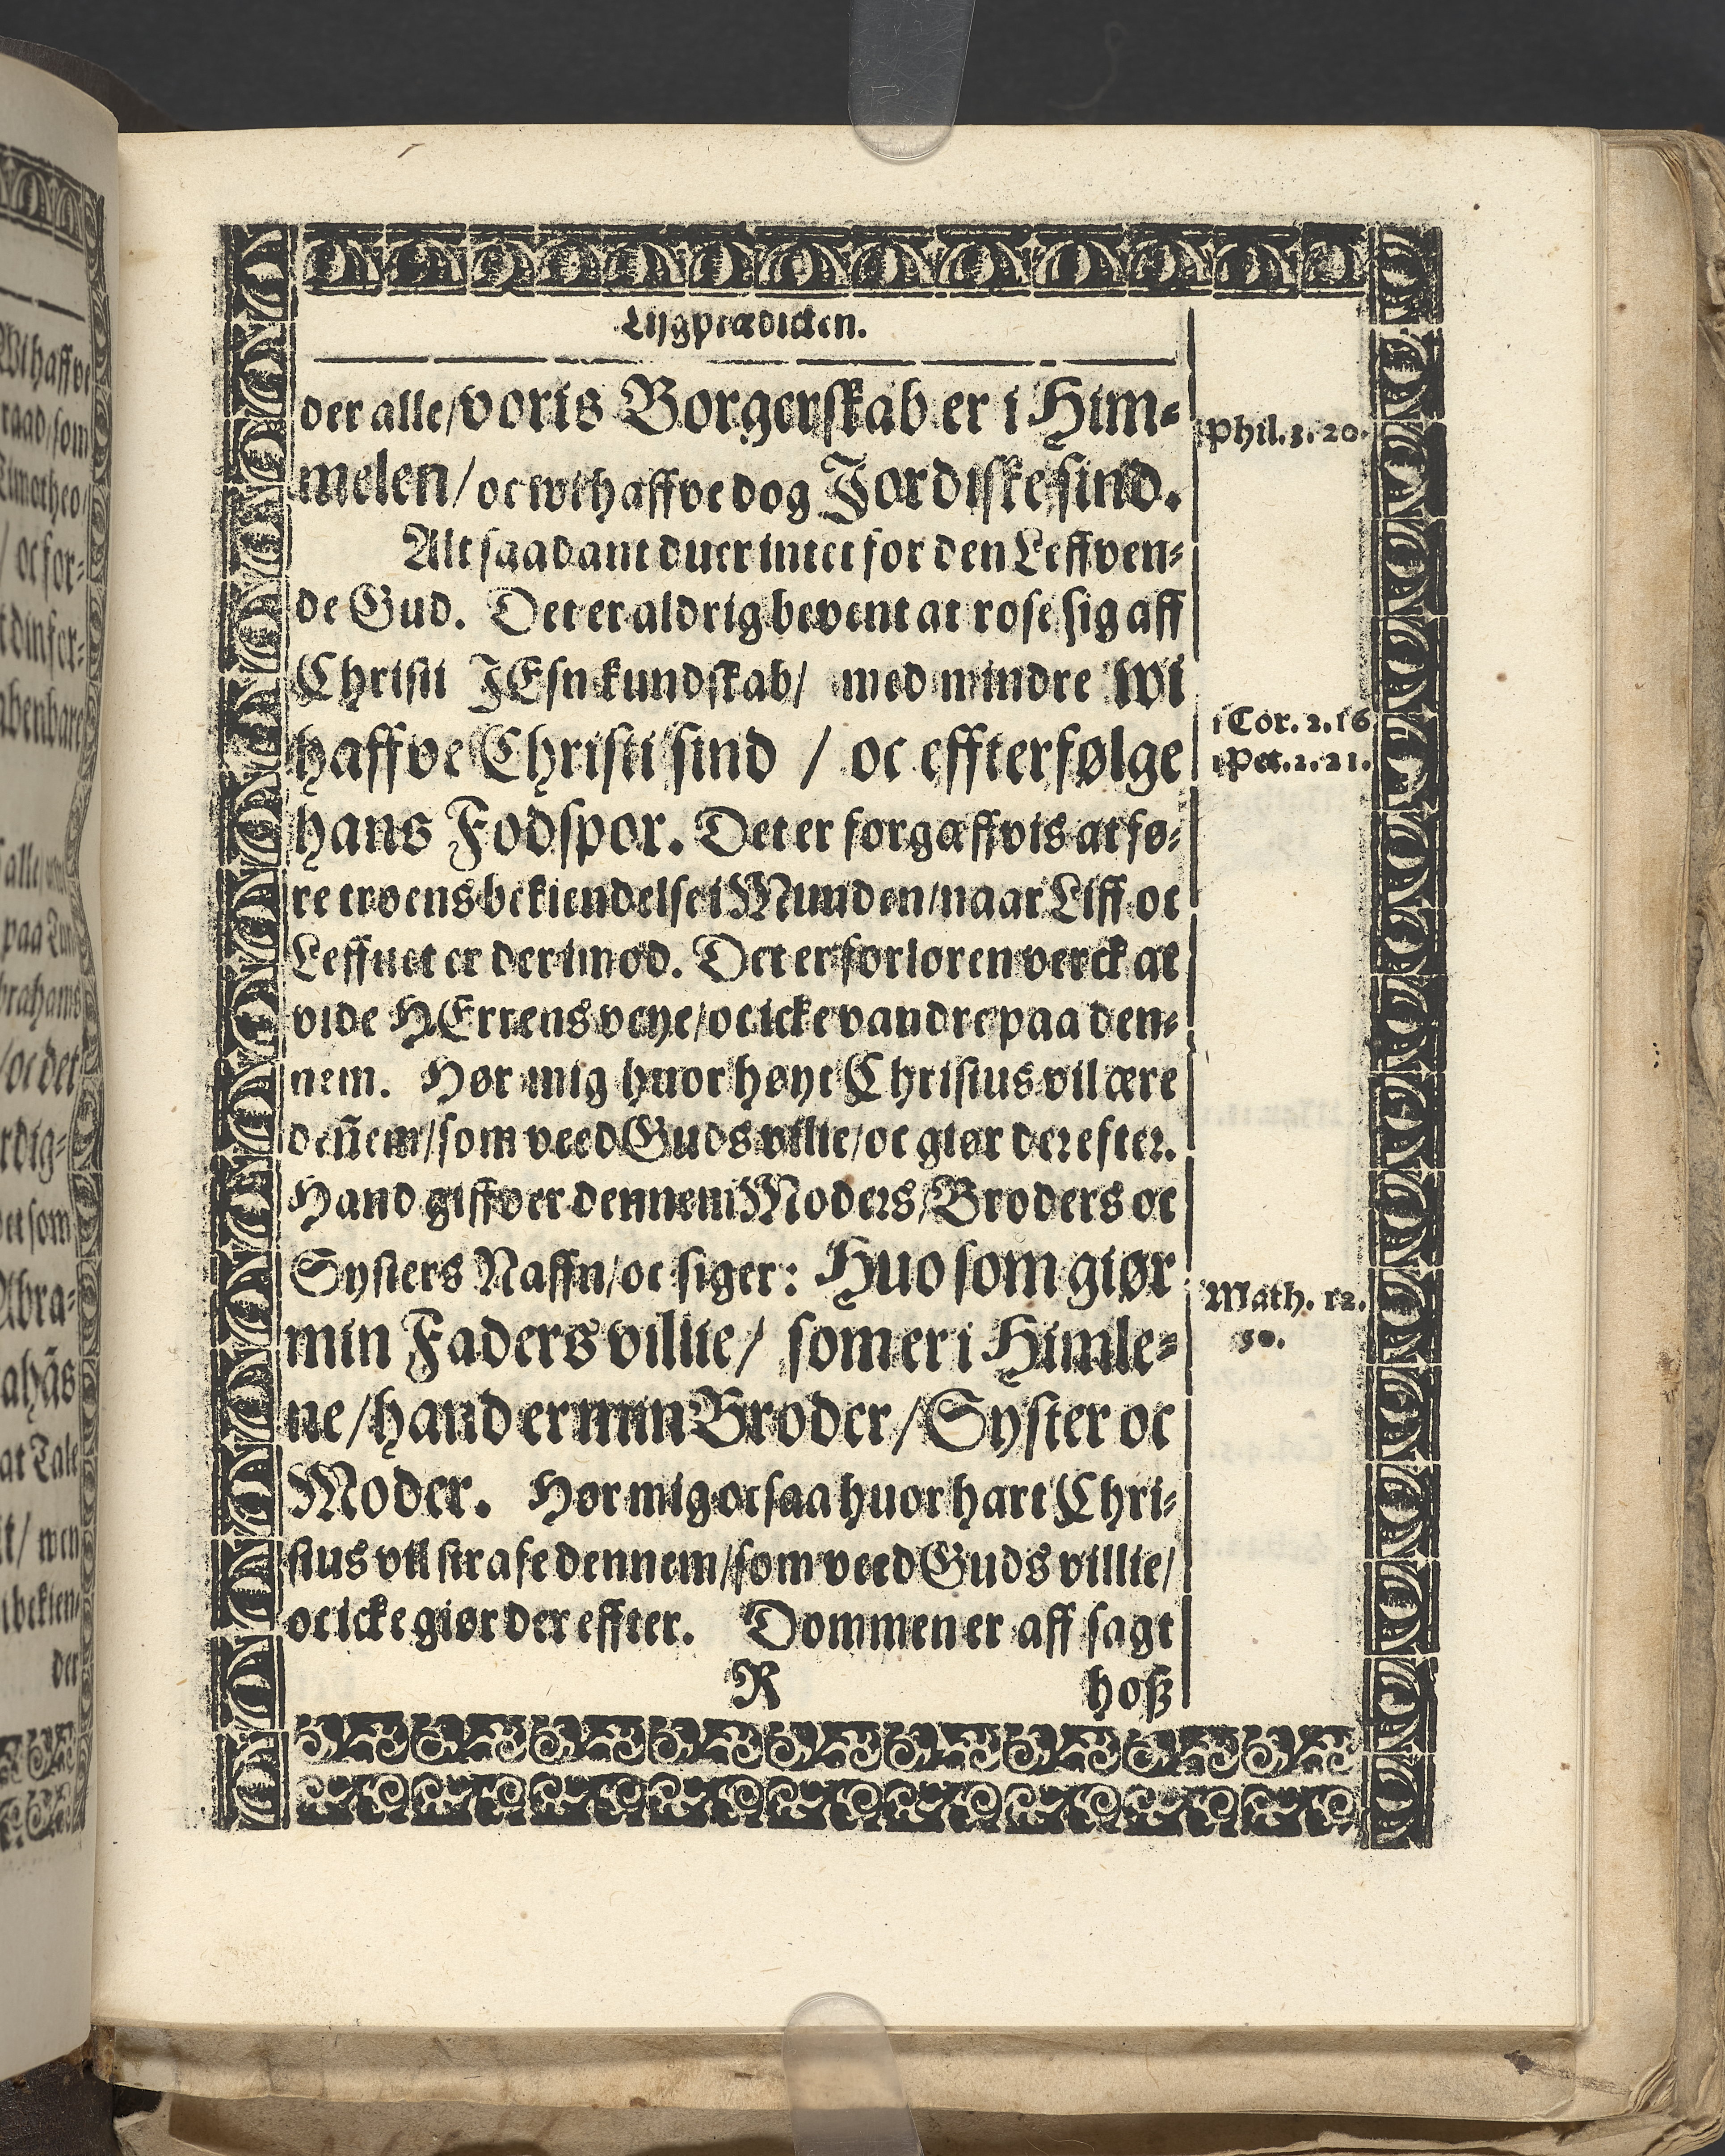 Lijgprædicken.
der alle/ voris Borgerskab er i Him-
melen/ oc wi haffve dog Jordiske sind.
Phil. 3. 20.
Alt saadant duer intet for den Leffven-
de Gud. Det er aldrig bevent at rose sig aff
Christi JEsu kundskab/ med mindre wi
haffve Christi sind / oc effterfølge
1 Cor. 2. 16
1 Pet. 2. 21.
hans Fodspor. Det er forgæffvis at fø-
re troens bekiendelse i Munden/ naar Liff oc
Leffnet er der imod. Det er forloren verck at
vide HErrens veye/ oc icke vandre paa den-
nem. Hør mig huor høyt Christus vil ære
deñem/ som veed Guds villie/ oc giør der efter.
Hand giffver dennem Moders/ Broders oc
Systers Naffn/ oc siger: Huo som giør
Math. 12.
50.
min Faders villie/ som er i Himle-
ne/ hand er min Broder/ Syster oc
Moder. Hør mig oc saa huor hart Chri-
stus vil strafe dennem/ som veed Guds villie/
oc icke giør der effter. Dommen er aff sagt
R hoß
Wi haffve
raad/ som
Timotheo/
/ oc for-
t din for-
abenbare
alle
paa
brahams
/ oc det
rdig-
som
Abra-
ahãs
at Tale
/ men
bekien-
der